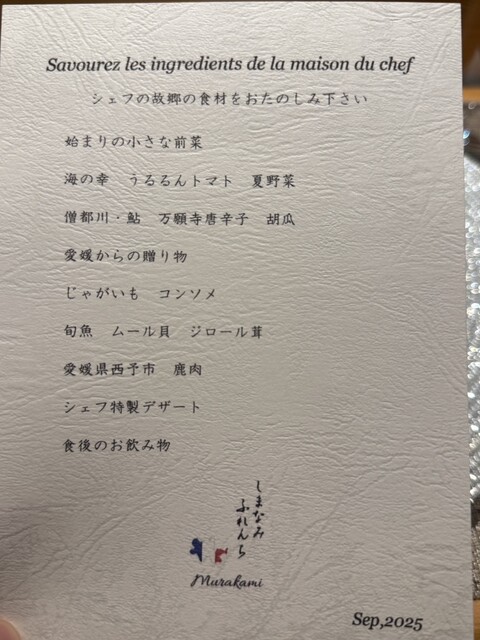 Savourez les ingredients de la maison du chef
シェフの故郷の食材をおたのしみ下さい
始まりの小さな前菜
海の幸　うるるんトマト　夏野菜
僧都川・鮎　万願寺唐辛子　胡瓜
愛媛からの贈り物
じゃがいも　コンソメ
旬魚　ムール貝　ジロール茸
愛媛県西予市　鹿肉
シェフ特製デザート
食後のお飲み物
しまなみ
ふれんち
Murakami
Sep,2025